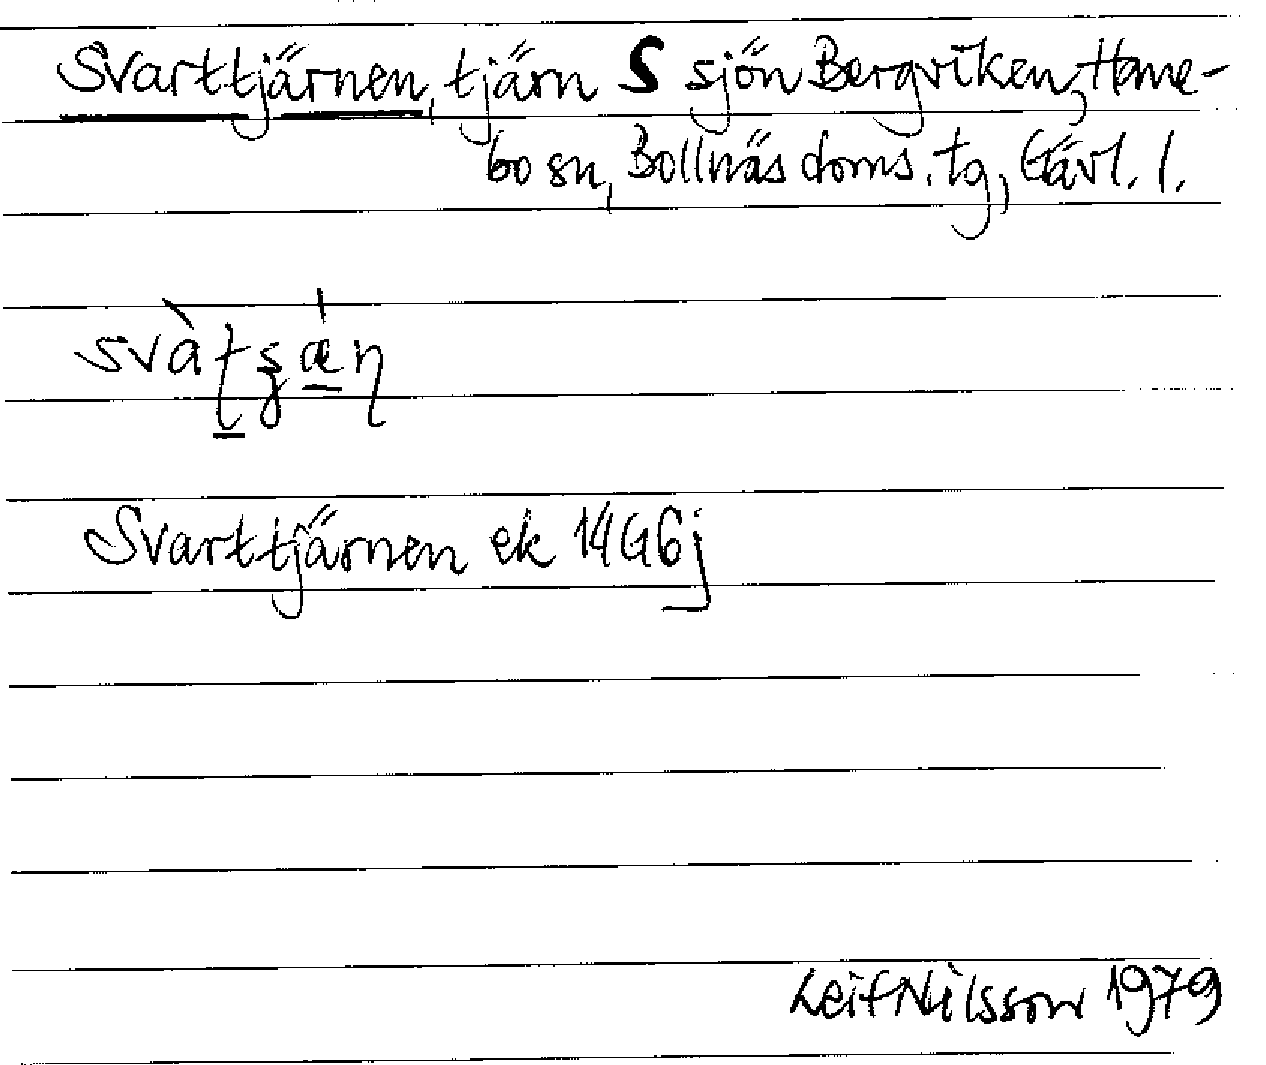 Svarttjärnen, tjärn S sjön Bergviken, Hane-
bo sn, Bollnäs doms. tg, Gävl. l.
Svarttjärnen ek 14G6j
Leif Nilsson 1979